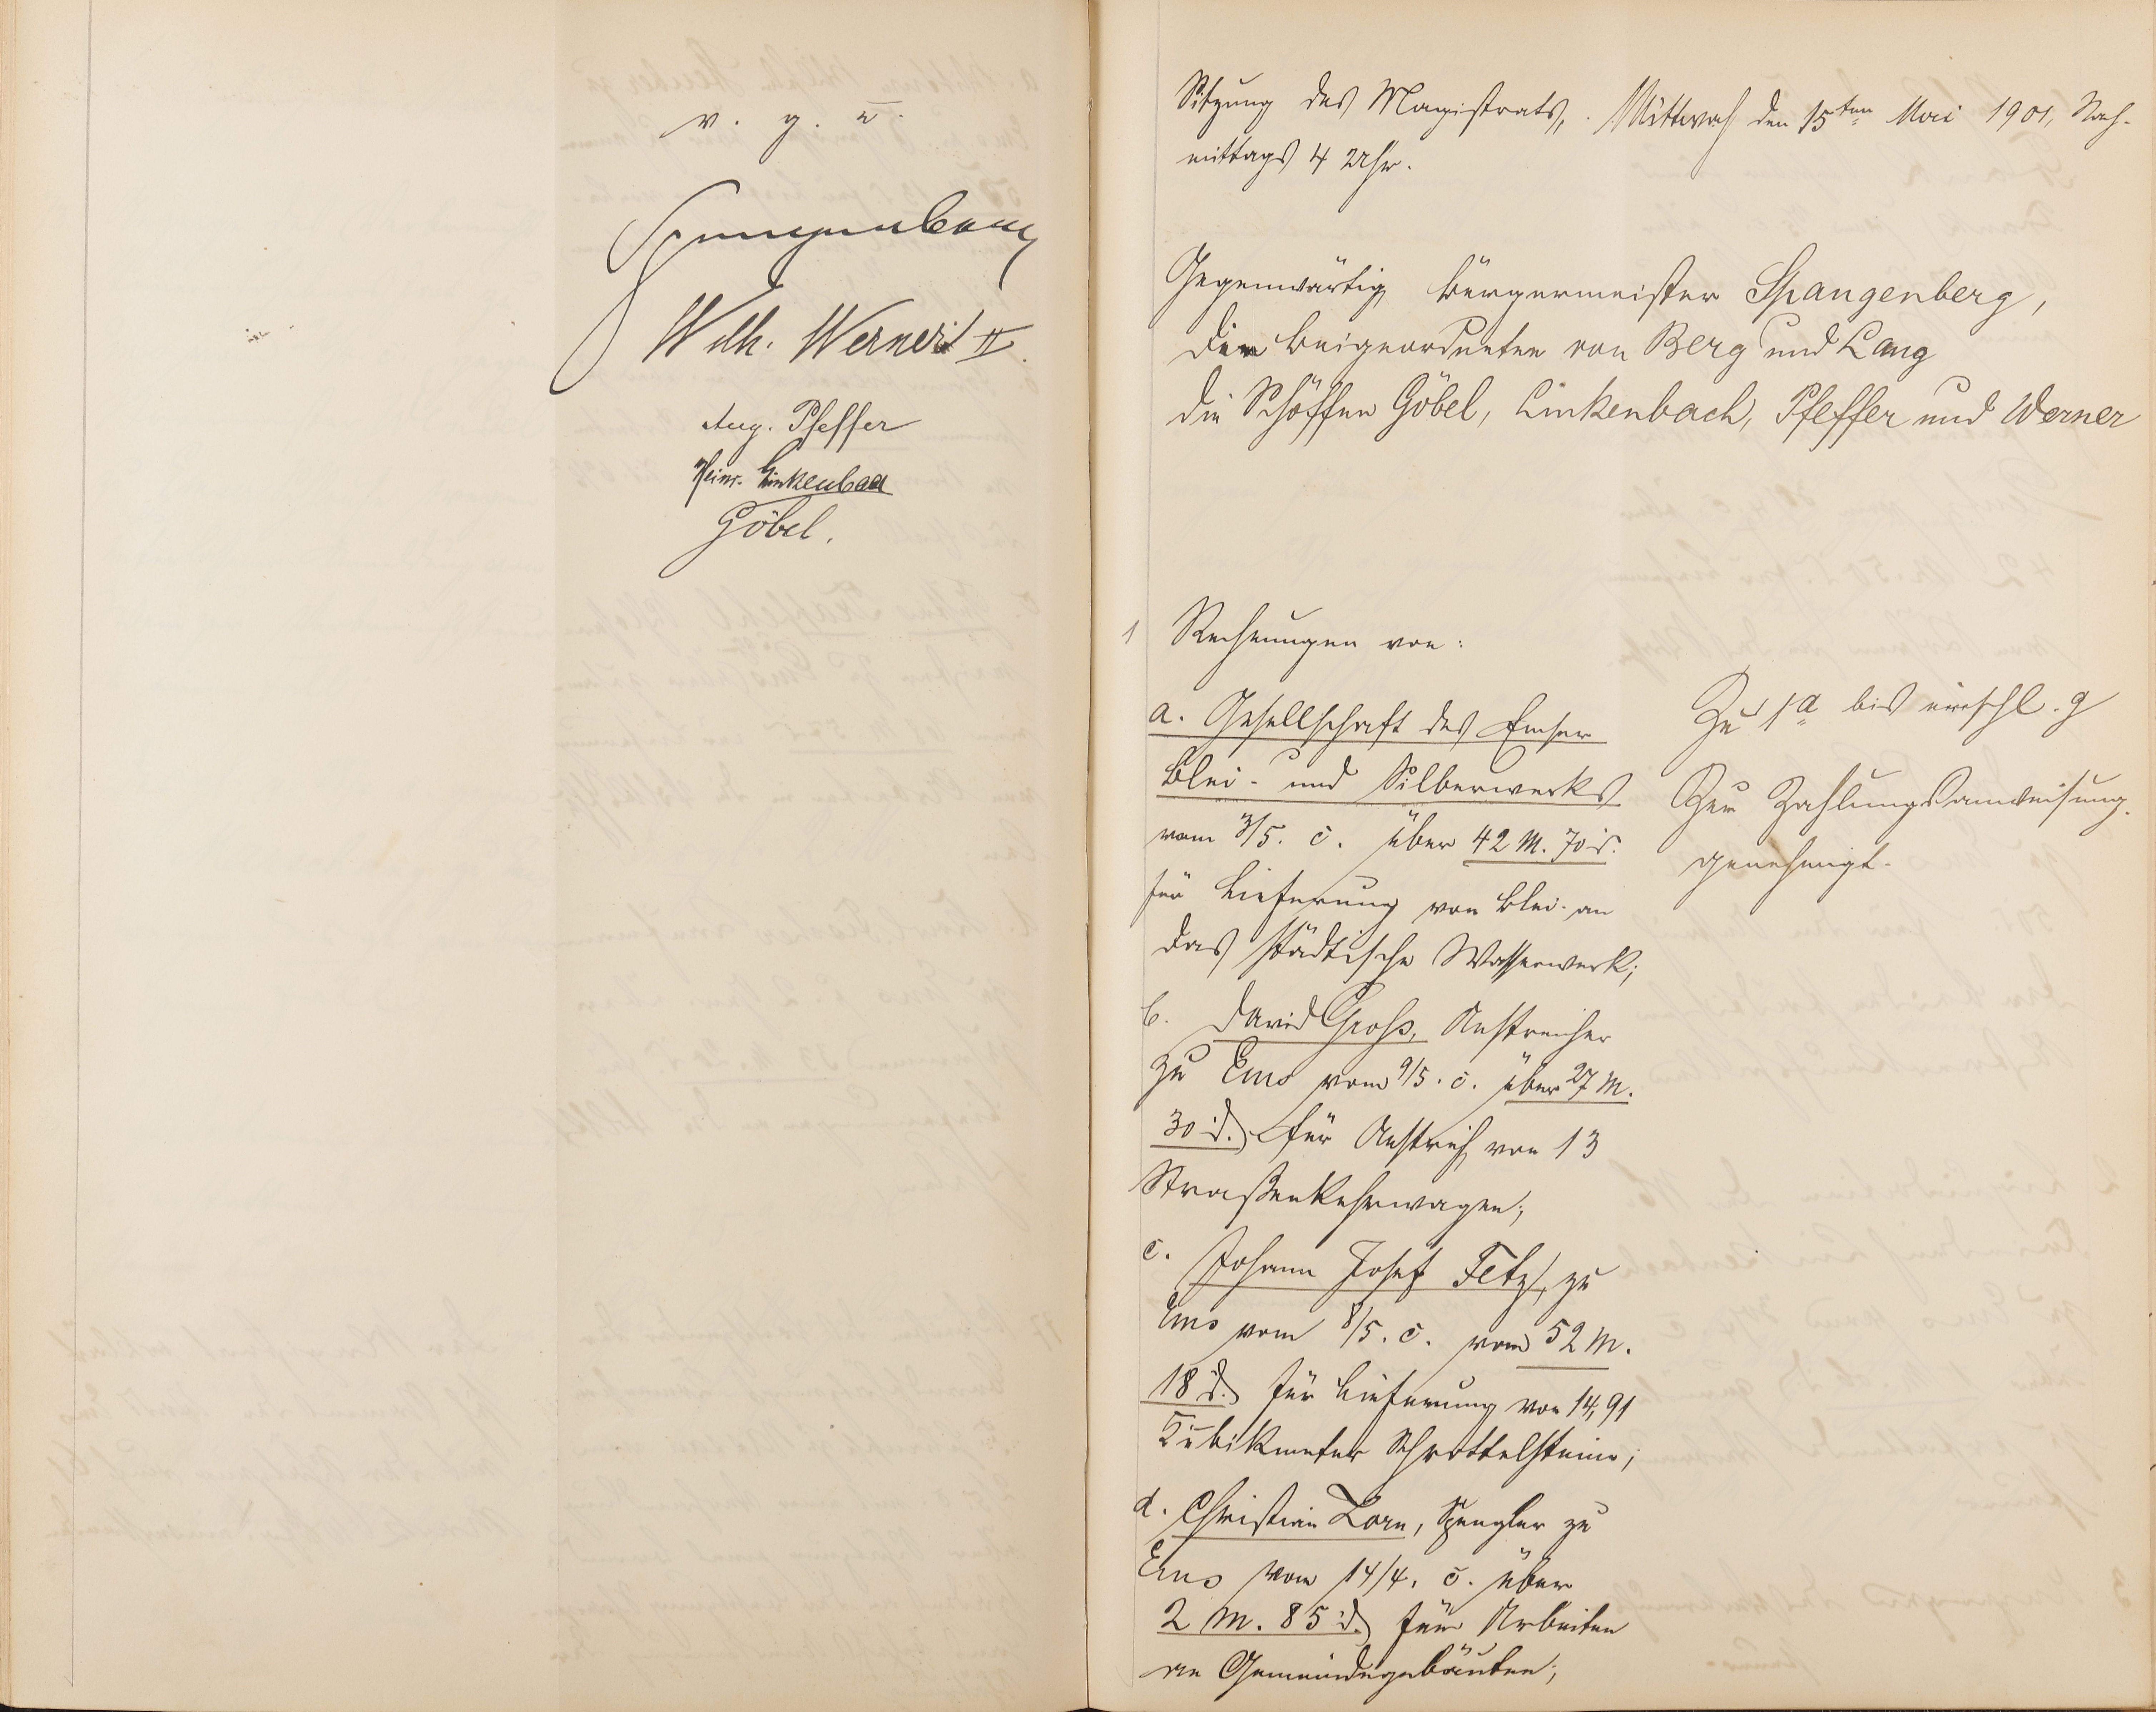 v. g. u.
Spangenberg
Wilh. Werner II.
Aug. Pfeffer
Heinr. Linkenbach
Göbel.
Sitzung des Magistrats, Mittwoch den 15ten Mai 1901, Nach-
mittags 4 Uhr.
Gegenwärtig Bürgermeister Spangenberg,
Die Beigeordneten von Berg und Lang
die Schöffen Göbel, Linkenbach, Pfeffer und Werner
1 Rechnungen von:
a. Gesellschaft des Emser
Blei- und Silberwerks
vom 3/5. c. über 42 M. 70 d.
für Lieferung von Blei an
das städtische Wasserwerk;
b. David Groß, Anstreicher
zu Ems vom 9/5. c. über 27 M.
30 d. für Anstrich von 13
Straßenkehrwagen;
c. Johann Josef Fetz, zu
Ems vom 8/5. c. von 52 M.
18 d. für Lieferung von 14,91
Kubikmeter Schrottelsteine;
d. Christian Lorn, Spengler zu
Ems vom 14/4. c. über
2 M. 85 d. für Arbeiten
an Gemeindegebäuden;
Zu 1a bis einschl. g
Zur Zahlungsanweisung
genehmigt.